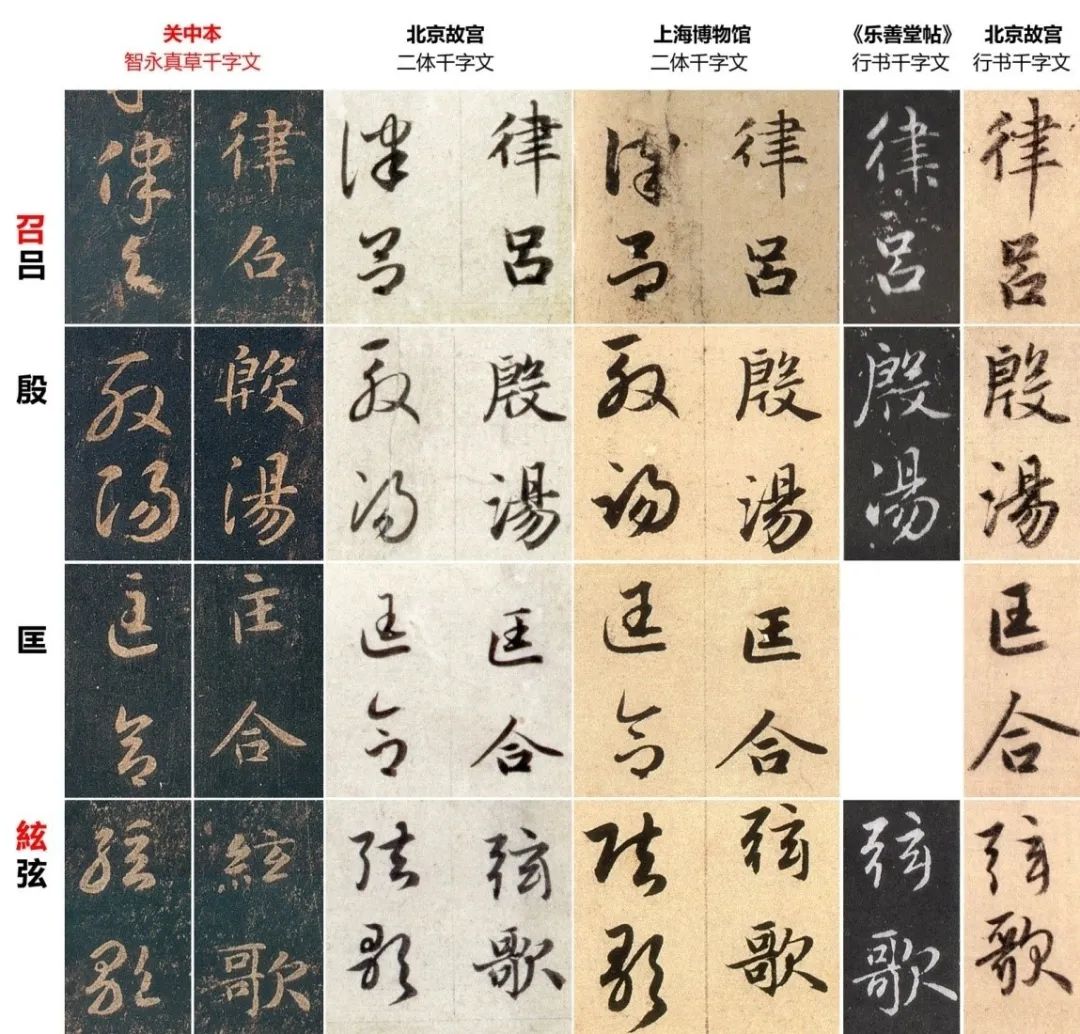 关中本 北京故宫 上海博物馆 《乐善堂帖》 北京故宫
智永真草千字文 二体千字文 二体千字文 行书千字文 行书千字文
召 律 律 律 律 律 律 律 律
吕 召 召 吕 吕 吕 吕 吕 吕
殷 殷 殷 殷 殷 殷 殷 殷 殷
湯 湯 湯 湯 湯 湯 湯 湯
匡 匡 匡 匡 匡 匡 匡 匡
合 合 合 合 合 合 合
絃 絃 絃 弦 弦 弦 弦 弦 弦
弦 歌 歌 歌 歌 歌 歌 歌 歌